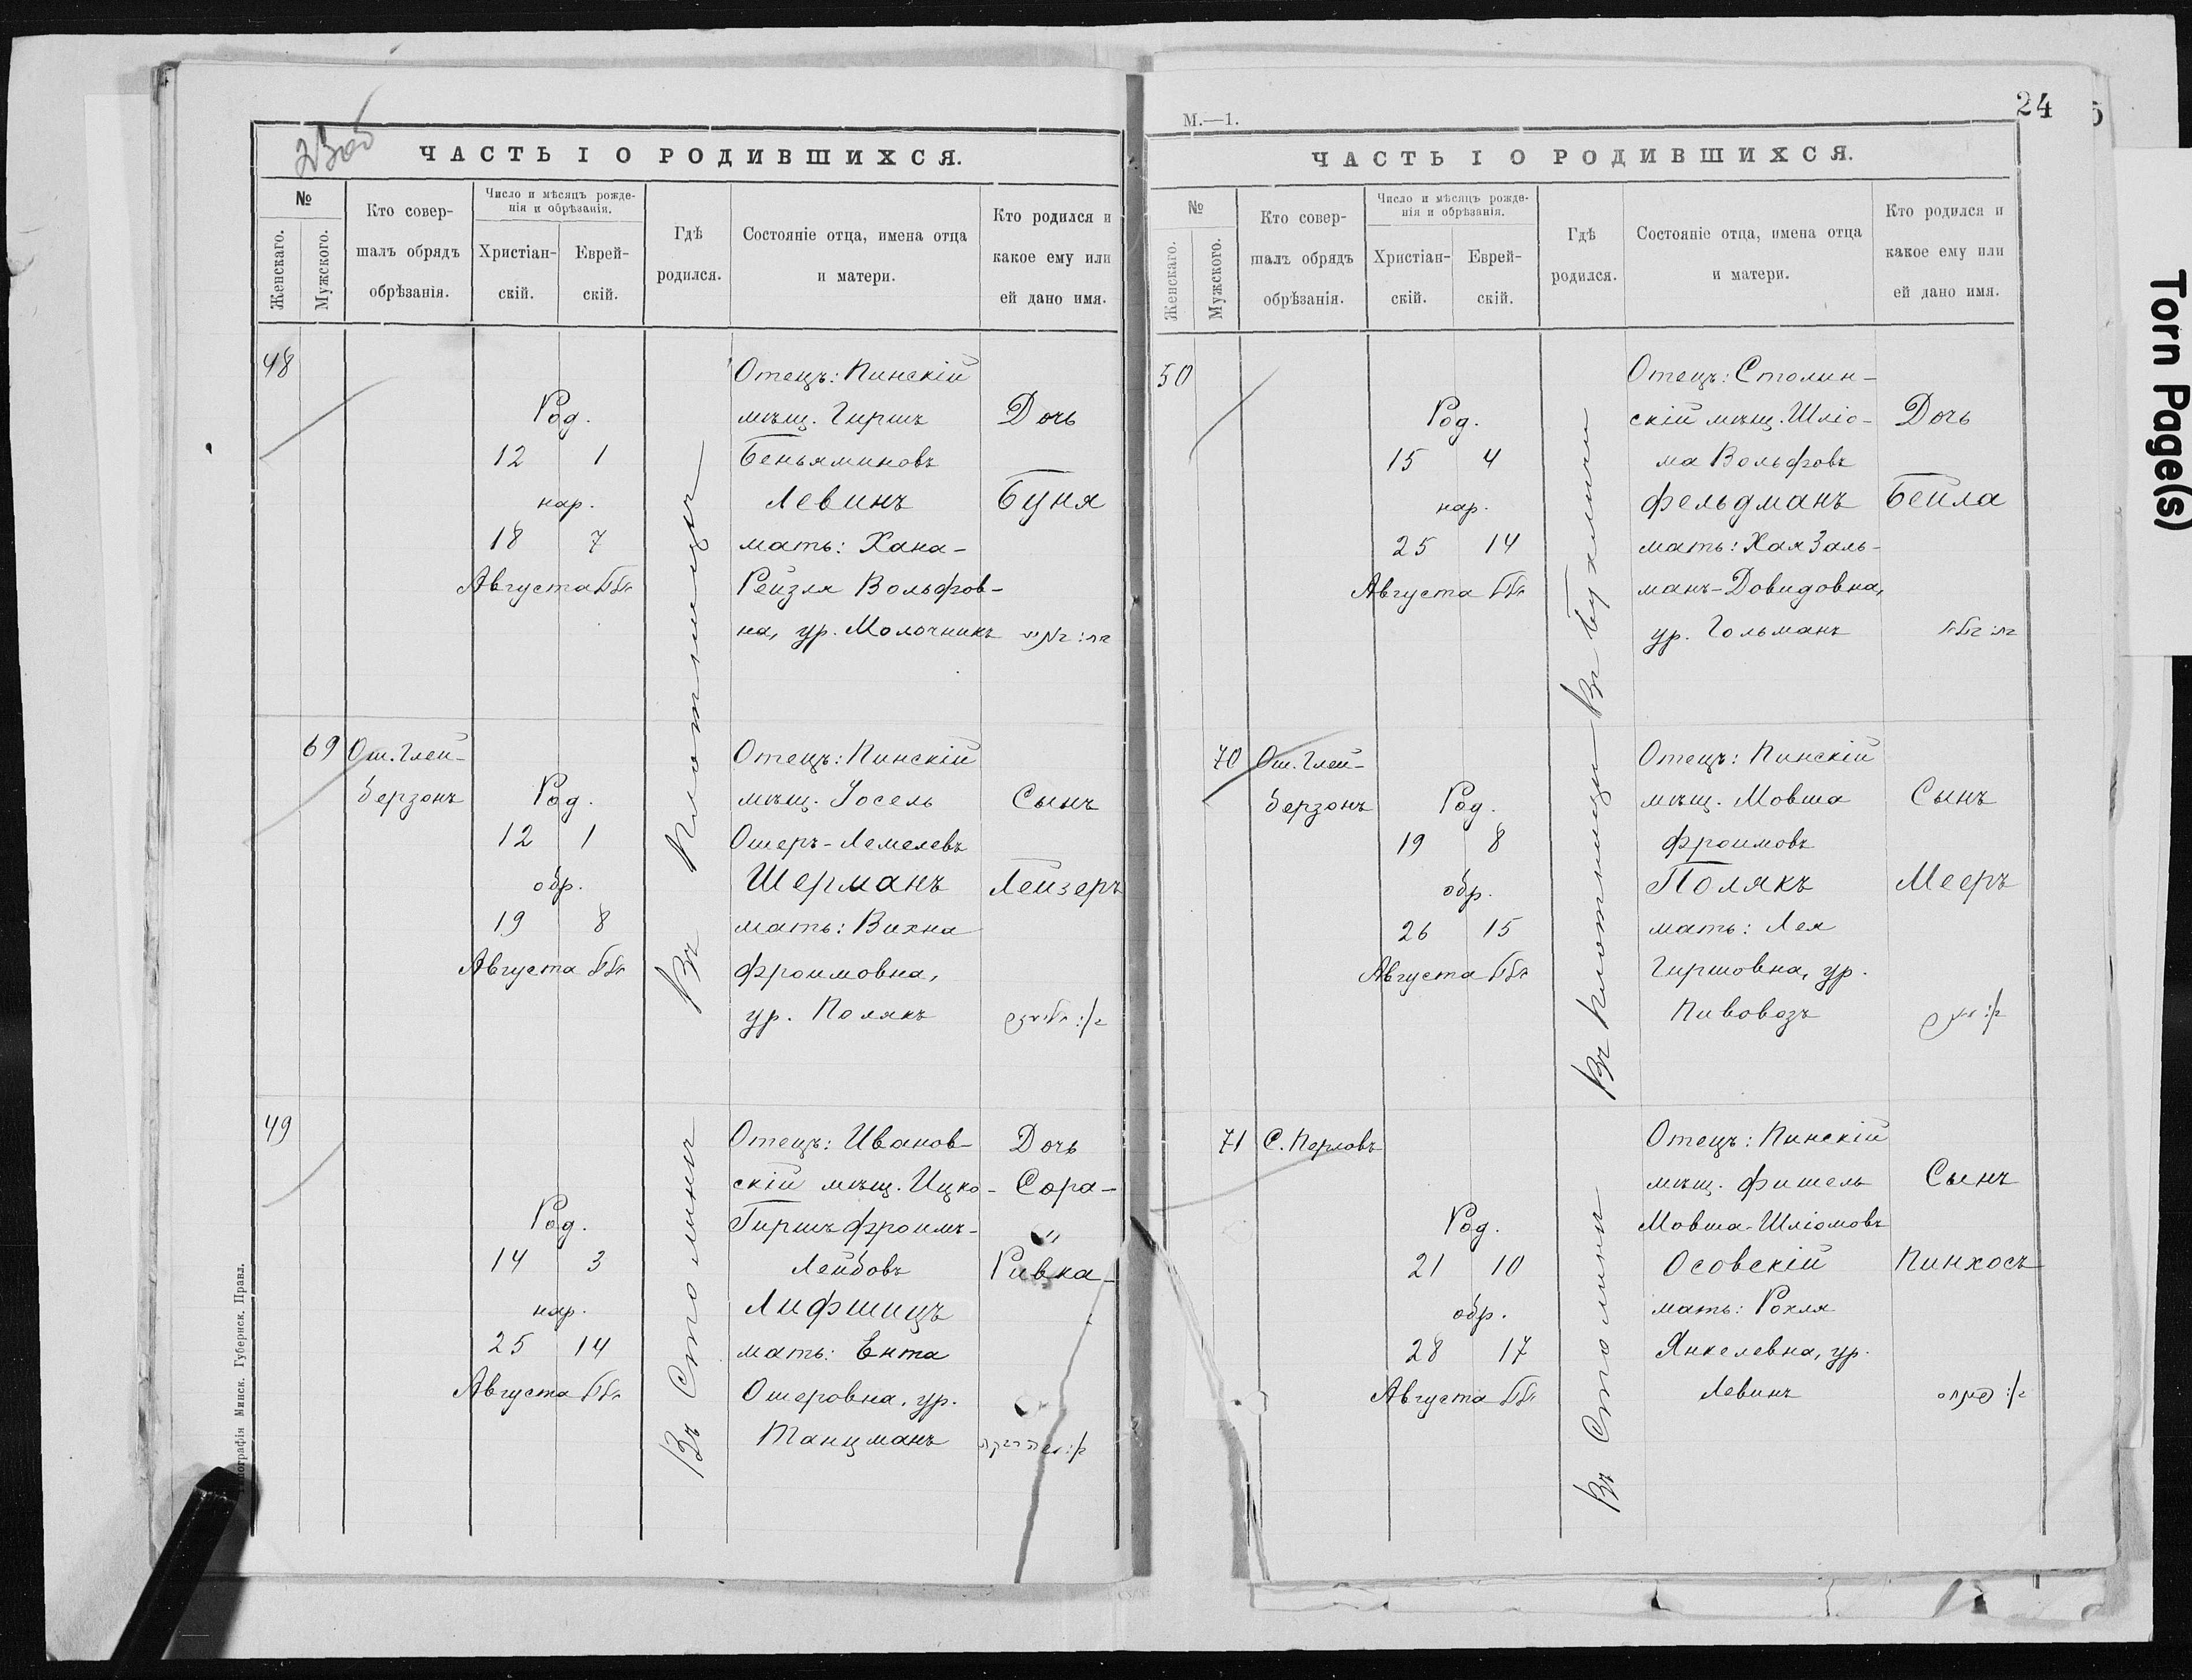 23об
ЧАСТЬ I О РОДИВШИХСЯ.
№
Женскаго.
Мужского.
Кто совер-
шалъ обрядъ
обрѣзанія.
Число и мѣсяцъ рожде-
нія и обрѣзанія.
Христіан-
скій.
Еврей-
скій.
Гдѣ
родился.
Состояніе отца, имена отца
и матери.
Кто родился и
какое ему или
ей дано имя.
48
Род.
12 1
нар.
18 7
Августа אלול
Въ
Отецъ: Пинскій
мѣщ. Гиршъ
Беньяминовъ
Левинъ
мать: Хана-
Рейзля Вольфов-
на, ур. Молочникъ
Дочь
Буня
69
Ош. Глей-
берзонъ
Род.
12 1
обр.
19 8
Августа אלול
Отецъ: Пинскій
мѣщ. Іосель
Ошеръ-Лемелевъ
Шерманъ
мать: Вихна
Фроимовна,
ур. Полякъ
Сынъ
Лейзеръ
49
Род.
14 3
нар.
25 14
Августа אלול
Въ Столинѣ
Отецъ: Иванов-
скій мѣщ. Ицко-
Гиршъ Фроимъ-
Лейбовъ
Лифшицъ
мать: Ента
Ошеровна, ур.
Танцманъ
Дочь
Сора-
Ривка-
Типографія Минск. Губернск. Правл.
М.—1.
24
ЧАСТЬ I О РОДИВШИХСЯ.
№
Женскаго.
Мужского.
Кто совер-
шалъ обрядъ
обрѣзанія.
Число и мѣсяцъ рожде-
нія и обрѣзанія.
Христіан-
скій.
Еврей-
скій.
Гдѣ
родился.
Состояніе отца, имена отца
и матери.
Кто родился и
какое ему или
ей дано имя.
50
Род.
15 4
нар.
25 14
Августа אלול
Въ Бухличи
Отецъ: Столин-
скій мѣщ. Шліо-
ма Вольфовъ
Фельдманъ
мать: Хая Заль-
манъ-Довидовна,
ур. Гольманъ
Дочь
Бейла
70
Ош. Глей-
берзонъ
Род.
19 8
обр.
26 15
Августа אלול
Въ
Отецъ: Пинскій
мѣщ. Мовша
Фроимовъ
Полякъ
мать: Лея
Гиршовна, ур.
Пивовозъ
Сынъ
Мееръ
71
С. Перловъ
Род.
21 10
обр.
28 17
Августа אלול
Въ Столинѣ
Отецъ: Пинскій
мѣщ. Фишель
Мовша-Шліомовъ
Осовскій
мать: Рохля
Янкелевна, ур.
Левинъ
Сынъ
Пинхосъ
Torn Page(s)